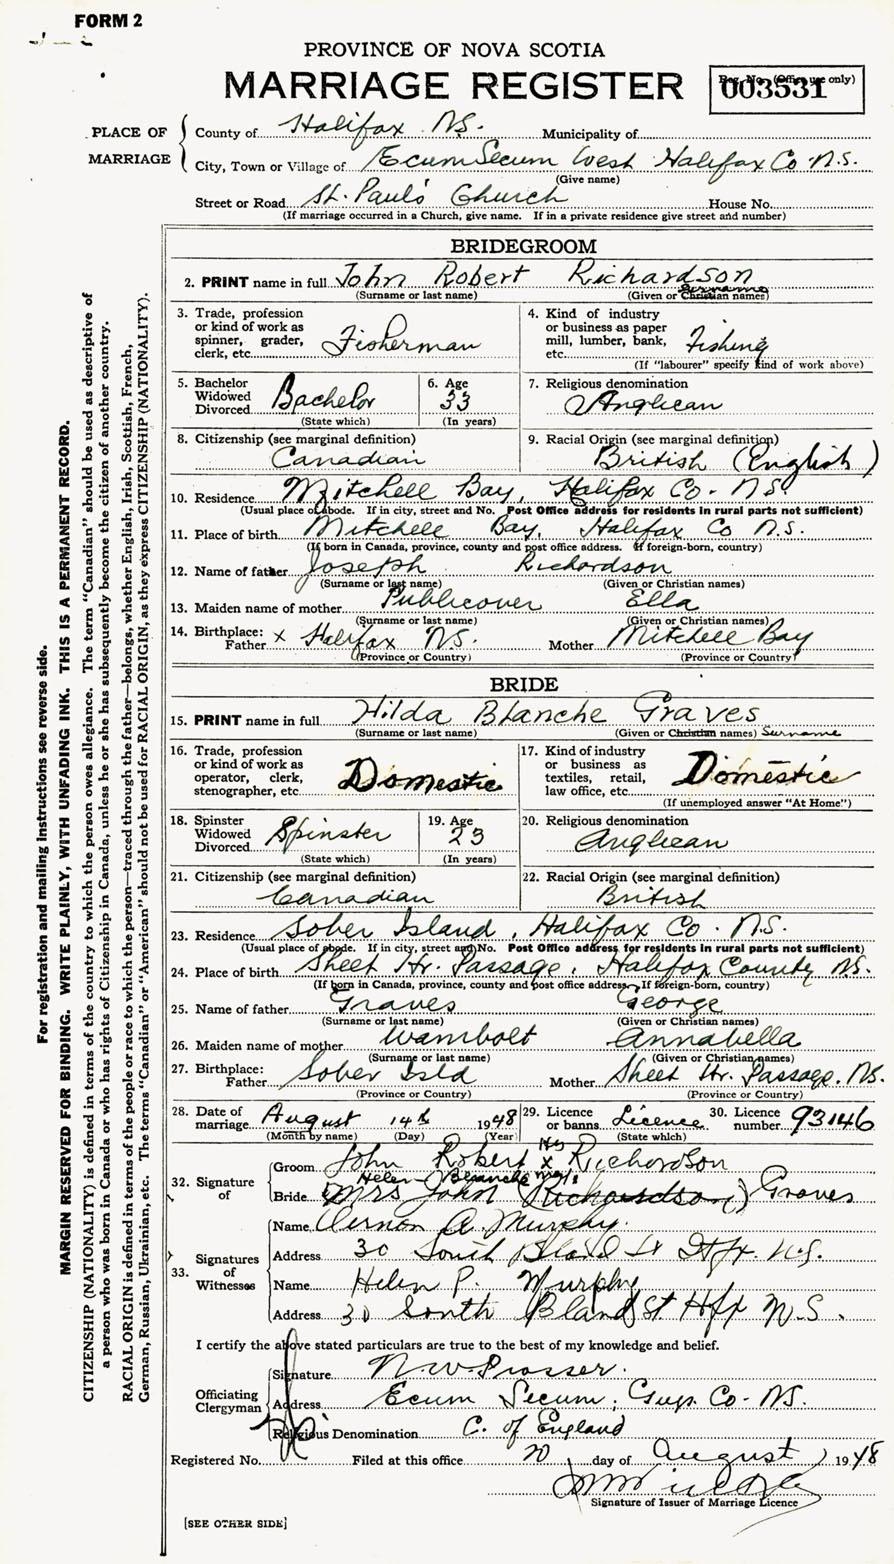 FORM 2
PROVINCE OF NOVA SCOTIA
MARRIAGE REGISTER
Reg. No. (Office use only)
003531
PLACE OF MARRIAGE
County of Halifax N.S. Municipality of
City, Town or Village of Ecum Secum West Halifax Co N.S.
(Give name)
Street or Road St. Paul's Church House No.
(If marriage occurred in a Church, give name. If in a private residence give street and number)
BRIDEGROOM
2. PRINT name in full John Robert Richardson
(Surname or last name) (Given or Christian names) Surname
3. Trade, profession or kind of work as spinner, grader, clerk, etc. Fisherman
4. Kind of industry or business as paper mill, lumber, bank, etc. Fishing
(If "labourer" specify kind of work above)
5. Bachelor Widowed Divorced Bachelor
(State which)
6. Age 33
(In years)
7. Religious denomination
Anglican
8. Citizenship (see marginal definition)
Canadian
9. Racial Origin (see marginal definition)
British (English)
10. Residence Mitchell Bay, Halifax Co. N.S.
(Usual place of abode. If in city, street and No. Post Office address for residents in rural parts not sufficient)
11. Place of birth Mitchell Bay, Halifax Co N.S.
(If born in Canada, province, county and post office address. If foreign-born, country)
12. Name of father Joseph Richardson
(Surname or last name) (Given or Christian names)
13. Maiden name of mother Publicover Ella
(Surname or last name) (Given or Christian names)
14. Birthplace: Father x Halifax N.S. Mother Mitchell Bay
(Province or Country) (Province or Country)
BRIDE
15. PRINT name in full Hilda Blanche Graves
(Surname or last name) (Given or Christian names) Surname
16. Trade, profession or kind of work as operator, clerk, stenographer, etc. Domestic
17. Kind of industry or business as textiles, retail, law office, etc. Domestic
(If unemployed answer "At Home")
18. Spinster Widowed Divorced Spinster
(State which)
19. Age 23
(In years)
20. Religious denomination
Anglican
21. Citizenship (see marginal definition)
Canadian
22. Racial Origin (see marginal definition)
British
23. Residence Sober Island, Halifax Co. N.S.
(Usual place of abode. If in city, street and No. Post Office address for residents in rural parts not sufficient)
24. Place of birth Sheet Hr. Passage, Halifax County N.S.
(If born in Canada, province, county and post office address. If foreign-born, country)
25. Name of father Graves George
(Surname or last name) (Given or Christian names)
26. Maiden name of mother Wambolt Annabella
(Surname or last name) (Given or Christian names)
27. Birthplace: Father Sober Isld Mother Sheet Hr. Passage. N.S.
(Province or Country) (Province or Country)
28. Date of marriage August 14th 1948
(Month by name) (Day) (Year)
29. Licence or banns Licence
(State which)
30. Licence number 93146
32. Signature of
Groom John Robert x Richardson
His
Bride (Mrs John Richardson) Graves
Blanche
33. Signatures of Witnesses
Name Vernon A. Murphy.
Address 30 South Bland St Hfx. N.S.
Name Helen P. Murphy
Address 30 South Bland St. Hfx N.S.
I certify the above stated particulars are true to the best of my knowledge and belief.
Officiating Clergyman
Signature N. W. Prosser.
Address Ecum Secum, Guys. Co. N.S.
Religious Denomination C. of England
Registered No. Filed at this office 20 day of August 1948
Signature of Issuer of Marriage Licence
[SEE OTHER SIDE]
For registration and mailing instructions see reverse side.
MARGIN RESERVED FOR BINDING. WRITE PLAINLY, WITH UNFADING INK. THIS IS A PERMANENT RECORD.
CITIZENSHIP (NATIONALITY) is defined in terms of the country to which the person owes allegiance. The term "Canadian" should be used as descriptive of
a person who was born in Canada or who has rights of Citizenship in Canada, unless he or she has subsequently become the citizen of another country.
RACIAL ORIGIN is defined in terms of the people or race to which the person—traced through the father—belongs, whether English, Irish, Scottish, French,
German, Russian, Ukrainian, etc. The terms "Canadian" or "American" should not be used for RACIAL ORIGIN, as they express CITIZENSHIP (NATIONALITY).